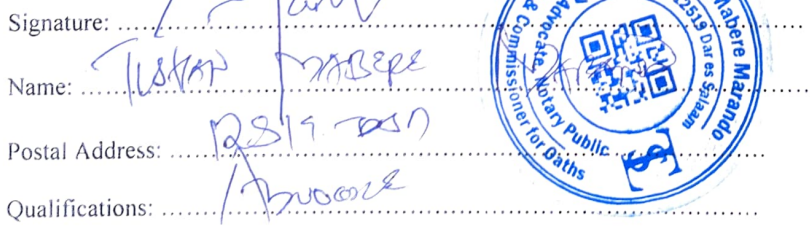 Signature:
Name: MABERE MARANDO
Postal Address: 12519 DSM
Qualifications: ADVOCATE
Mabere Marando
12519 Dar es Salaam
Advocate, Notary Public
& Commissioner for Oaths